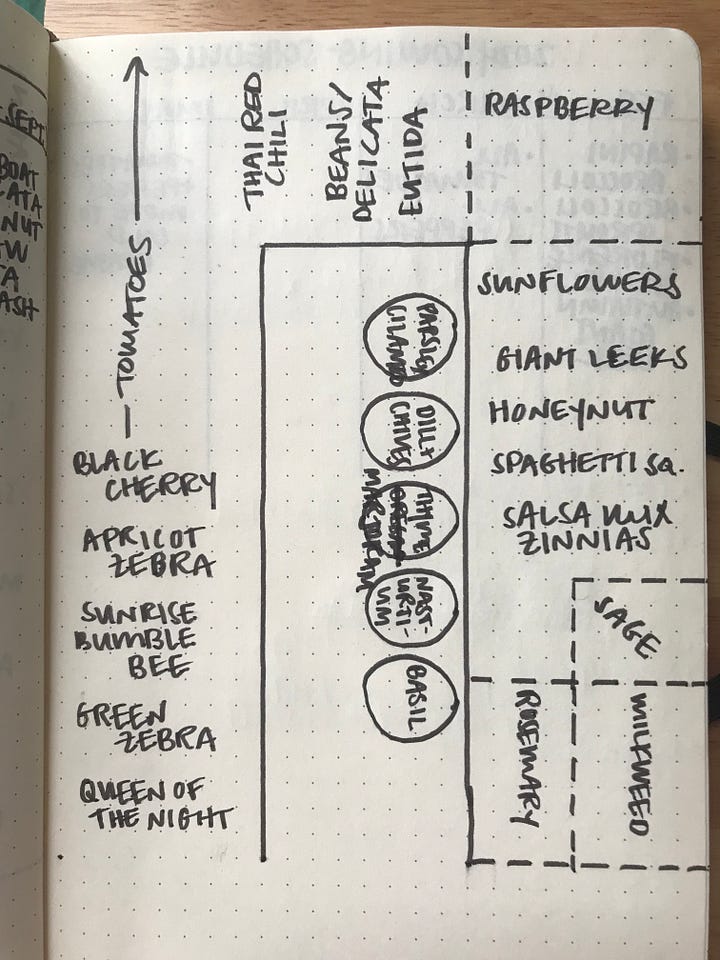 SEPT
THAI RED
CHILI
BEANS/
DELICATA
RASPBERRY
TOMATOES
BLACK
CHERRY
APRICOT
ZEBRA
SUNRISE
BUMBLE
BEE
GREEN
ZEBRA
QUEEN OF
THE NIGHT
DILL +
CHIVES
THYME
MARJORAM
NAST-
URTI-
UM
BASIL
SUNFLOWERS
GIANT LEEKS
HONEYNUT
SPAGHETTI SQ.
SALSA MIX
ZINNIAS
SAGE
ROSEMARY
MILKWEED